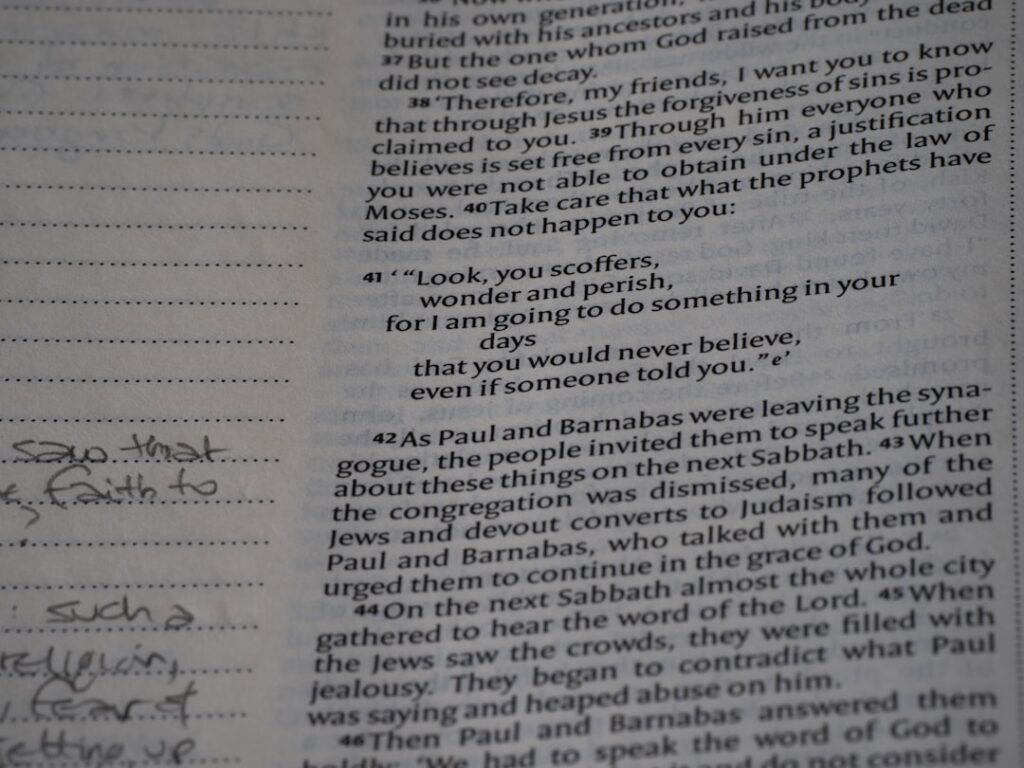 saw that
faith to
: such a
religion,
fear of
setting up
in his own generation,
buried with his ancestors and his body
37 But the one whom God raised from the dead
did not see decay.
38 ‘Therefore, my friends, I want you to know
that through Jesus the forgiveness of sins is pro-
claimed to you. 39 Through him everyone who
believes is set free from every sin, a justification
you were not able to obtain under the law of
Moses. 40 Take care that what the prophets have
said does not happen to you:
41 ‘ “Look, you scoffers,
wonder and perish,
for I am going to do something in your
days
that you would never believe,
even if someone told you.” e’
42 As Paul and Barnabas were leaving the syna-
gogue, the people invited them to speak further
about these things on the next Sabbath. 43 When
the congregation was dismissed, many of the
Jews and devout converts to Judaism followed
Paul and Barnabas, who talked with them and
urged them to continue in the grace of God.
44 On the next Sabbath almost the whole city
gathered to hear the word of the Lord. 45 When
the Jews saw the crowds, they were filled with
jealousy. They began to contradict what Paul
was saying and heaped abuse on him.
46 Then Paul and Barnabas answered them
boldly: ‘We had to speak the word of God to
and do not consider